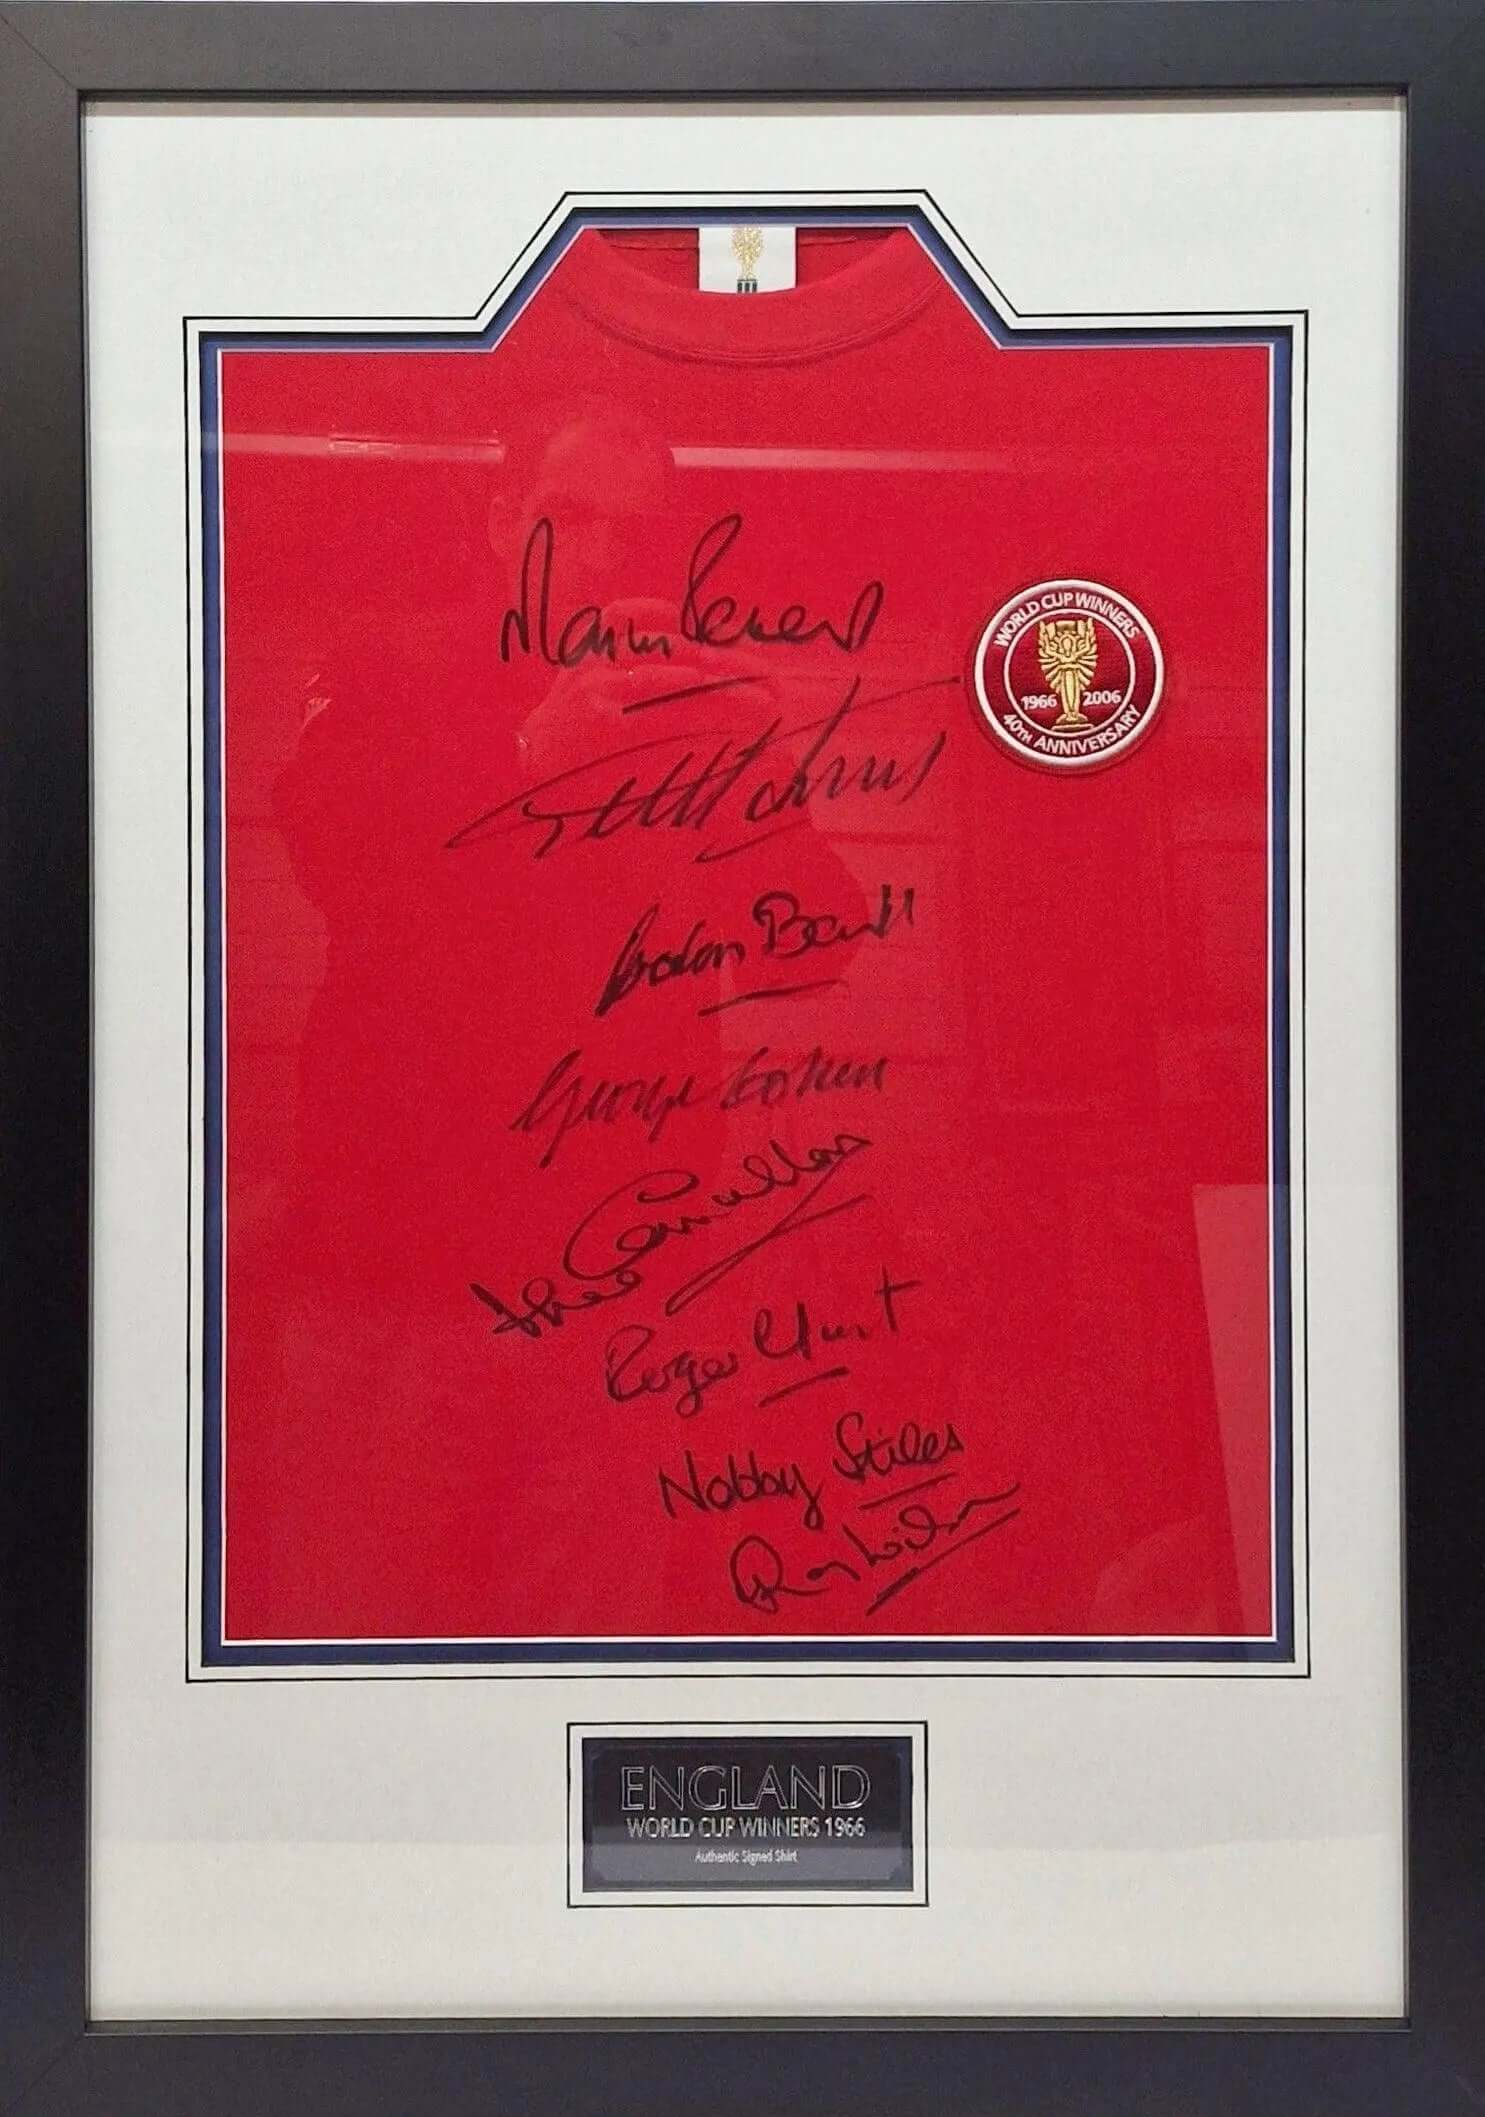 Martin Peters
WORLD CUP WINNERS
1966 2006
40TH ANNIVERSARY
Geoff Hurst
Gordon Banks
George Cohen
Ian Callaghan
Roger Hunt
Nobby Stiles
Ray Wilson
ENGLAND
WORLD CUP WINNERS 1966
Authentic Signed Shirt